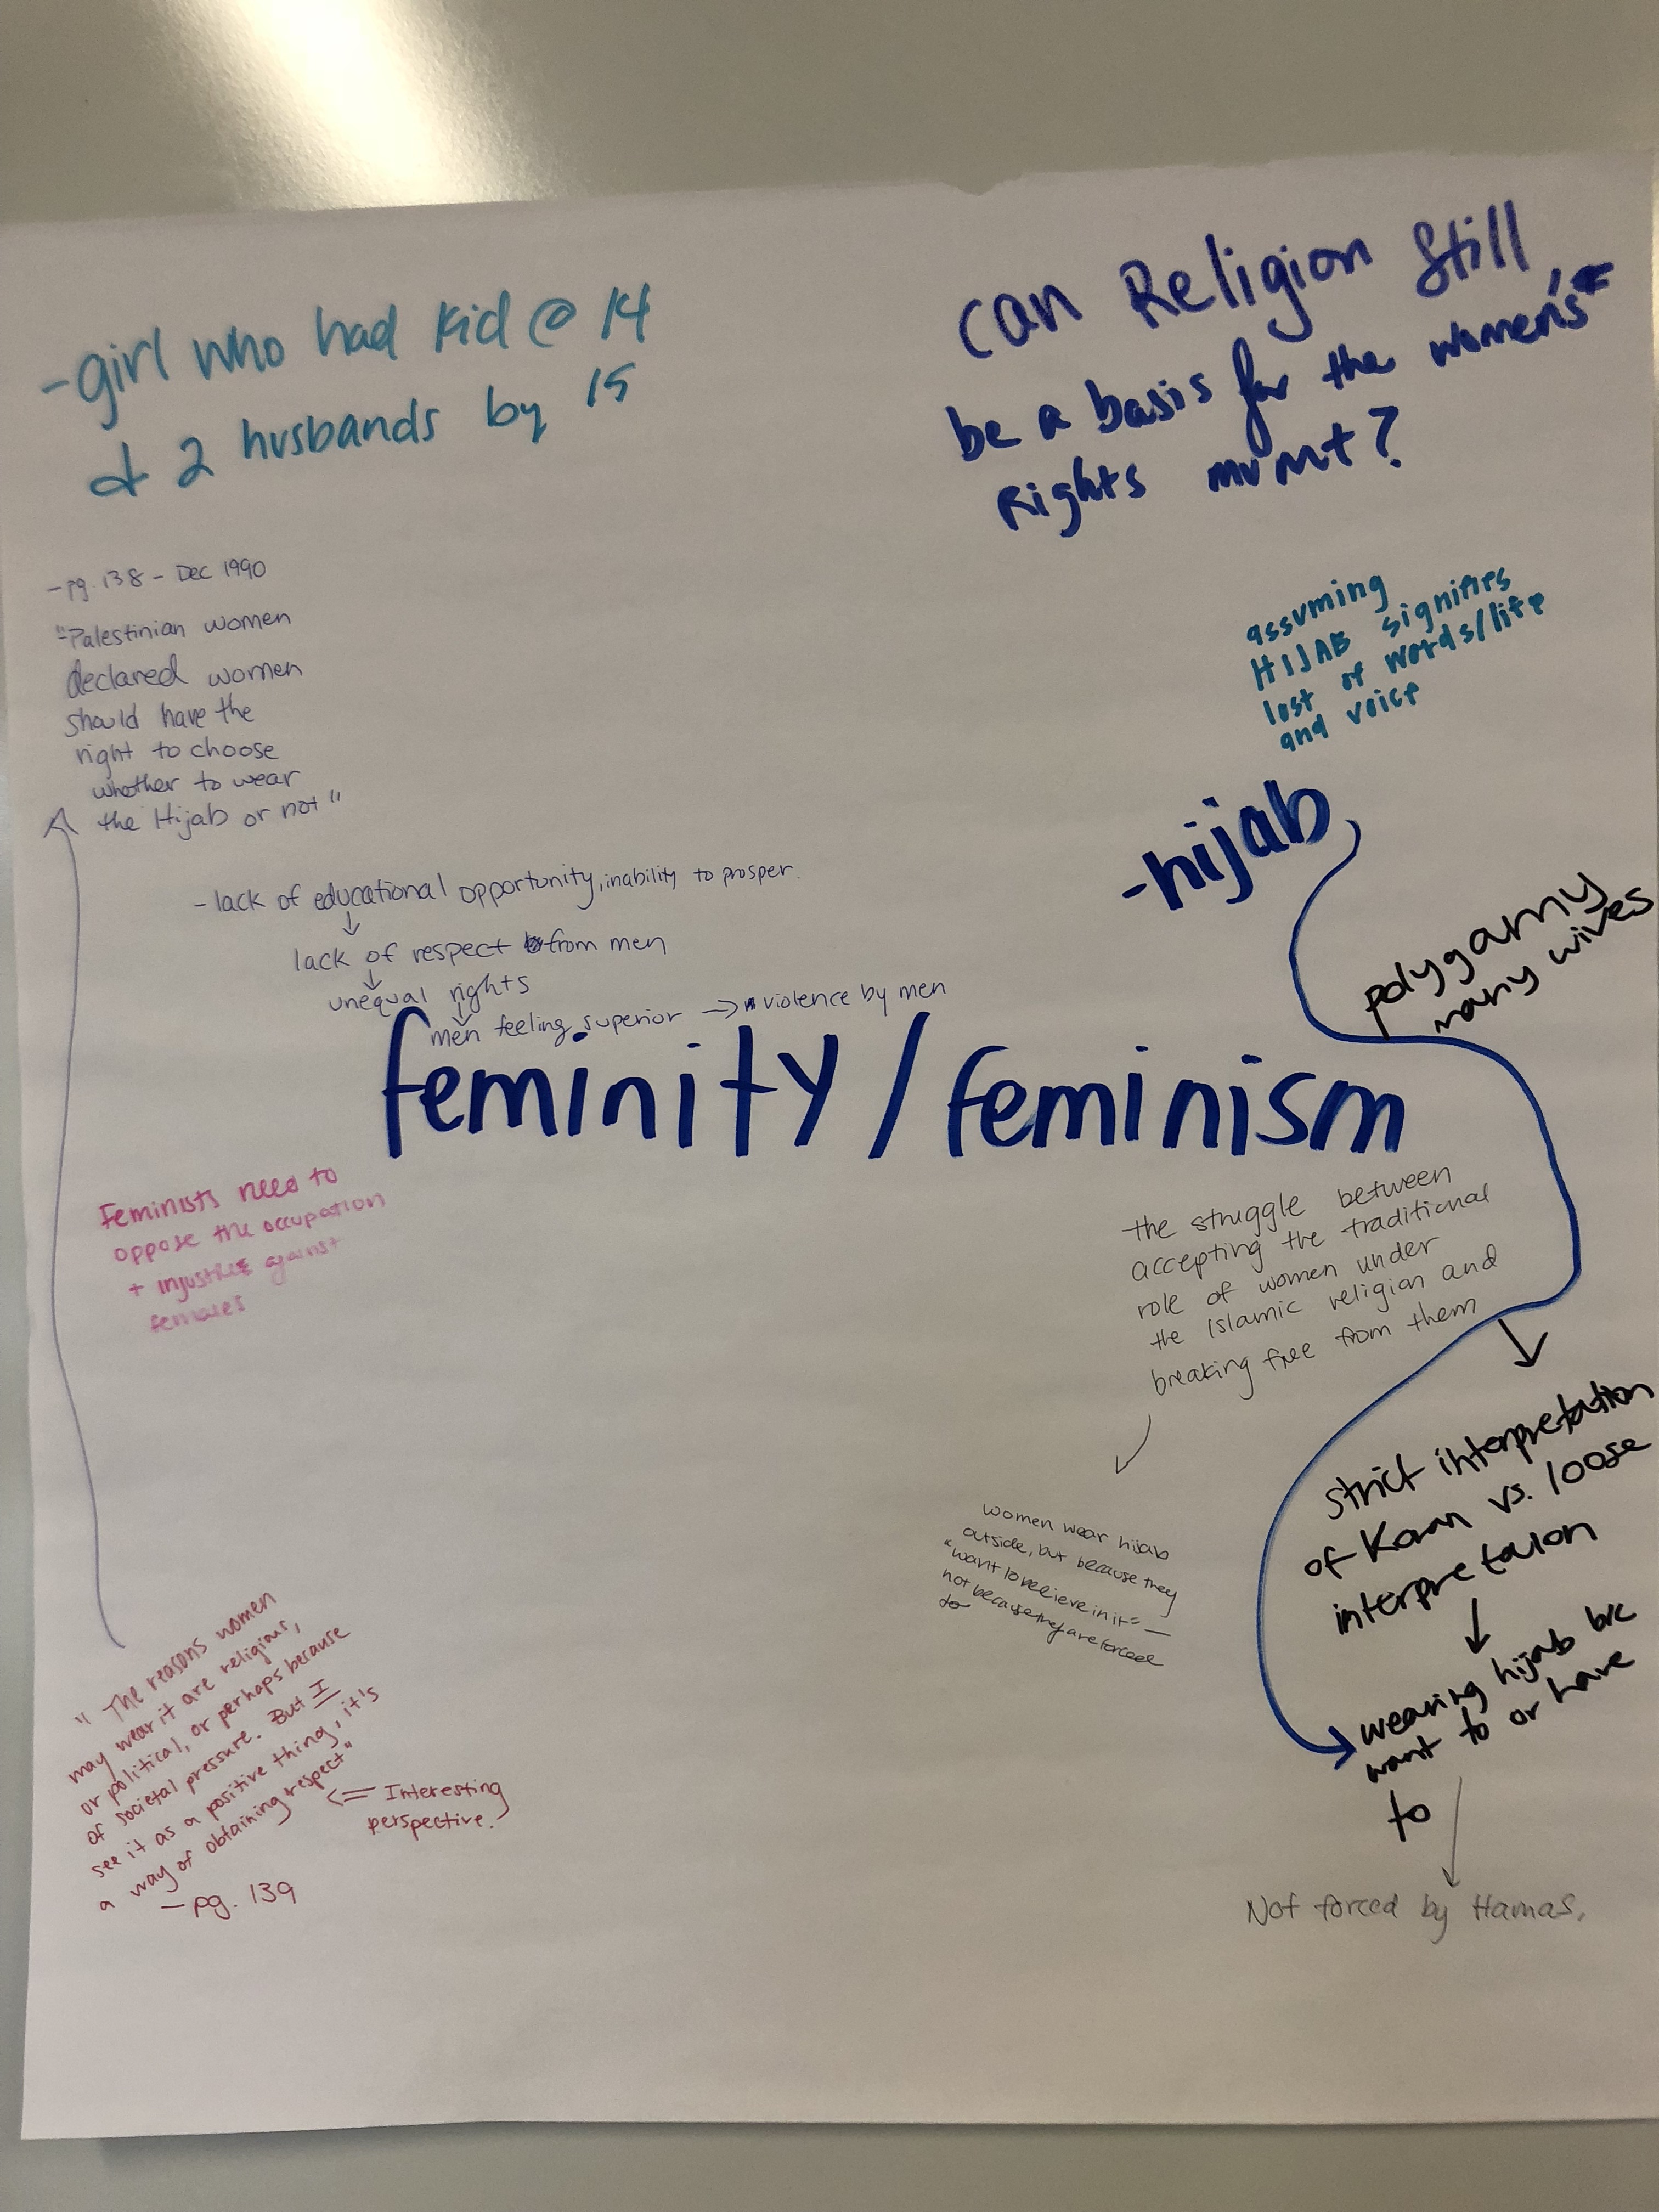 -girl who had kid @ 14
& 2 husbands by 15
can Religion still
be a basis for the women's
Rights mvmnt?
-pg. 138 - Dec 1990
"Palestinian women
declared women
should have the
right to choose
whether to wear
the Hijab or not"
assuming
HIJAB signifies
lost of words/life
and voice
-hijab
polygamy
many wives
- lack of educational opportunity, inability to prosper.
lack of respect from men
unequal rights
men feeling superior → violence by men
feminity/feminism
Feminists need to
oppose the occupation
+ injustices against
females
the struggle between
accepting the traditional
role of women under
the Islamic religion and
breaking free from them
women wear hijab
outside, but because they
"want to believe in it" —
not because they are forced
to
strict interpretation
of Koran vs. loose
interpretaion
wearing hijab b/c
want to or have
to
Not forced by Hamas.
"The reasons women
may wear it are religious,
or political, or perhaps because
of societal pressure. But I
see it as a positive thing, it's
a way of obtaining respect"
- pg. 139
<= Interesting
perspective.